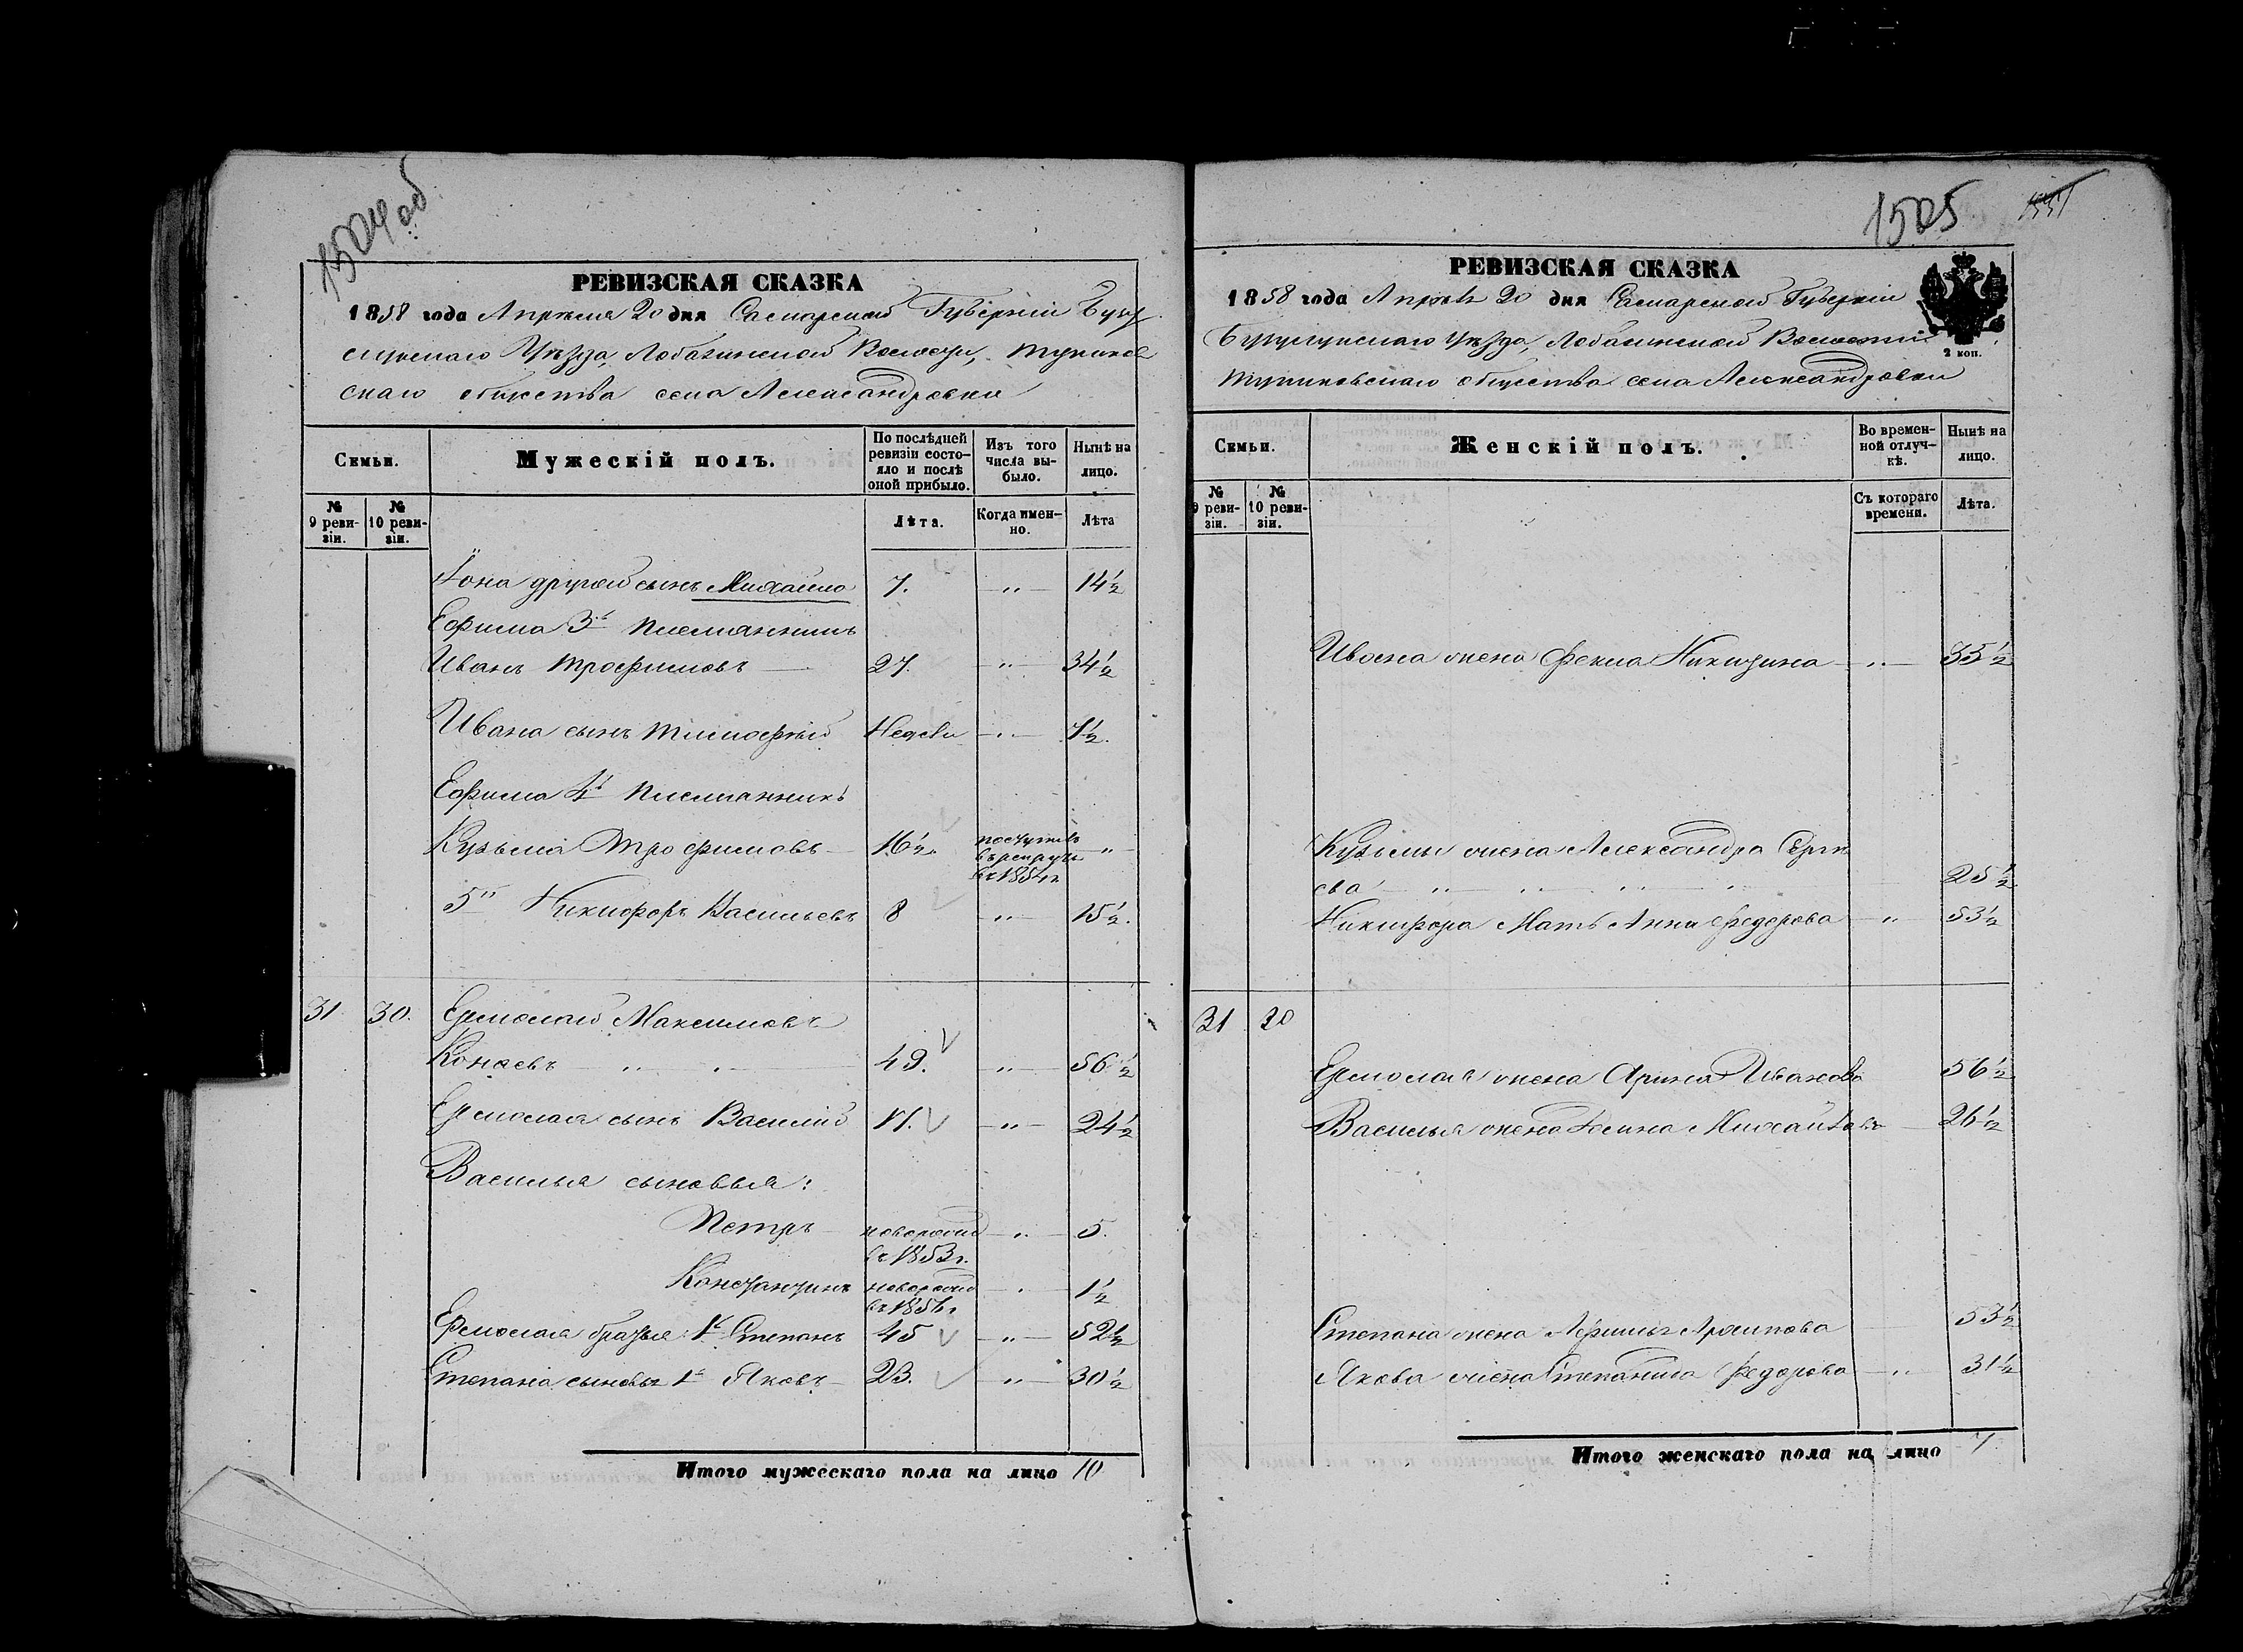 1504 об
РЕВИЗСКАЯ СКАЗКА
1858 года Апреля 20 дня Самарской Губернiи Бугу
слунскаго Уѣзда, Волости,
скаго общества села Александровки
Семьи.
Мужескій полъ.
По послѣдней ревизіи состо-яло и послѣ оной прибыло.
Изъ того числа вы-было.
Нынѣ на лицо.
№ 9 реви-зіи.
№ 10 реви-зіи.
Лѣта.
Когда имен-но.
Лѣта
Іона другой сынъ Михайло 7. —"— 14½
Ефима 3й племянникъ
Иванъ Трофимовъ — 27. —"— 34½
Ивана сынъ Тимофѣй —"— 7½.
Ефима 4й племянникъ
Кузьма Трофимовъ — 16½ поступ. въ рекруты въ 1854г. "
5й Никифоръ Васильевъ 8 —"— 15½.
31. 30. Ермолай Максимовъ
Конаевъ —"— 49. —"— 56½
Ермолая сынъ Василій 17. —"— 24½
Василья сыновья:
Петръ новорожд. въ 1853г. —"— 5.
Константинъ новорожд. въ 1856г. —"— 1½
Ермолая братья 1й Степанъ 45 —"— 52½
Степана сыновья 1й Яковъ — 23. —"— 30½
Итого мужескаго пола на лицо 10
1505
РЕВИЗСКАЯ СКАЗКА
1858 года Апрѣля 20 дня Самарской Губерніи
Бугуслунскаго Уѣзда, Волости
общества села Александровки
2 коп.
Семьи.
Женскій полъ.
Во времен-ной отлуч-кѣ.
Нынѣ на лицо.
№ 9 реви-зіи.
№ 10 реви-зіи.
Съ котораго времени.
Лѣта.
Ивана жена Фекла Никитина —"— 35½
Кузьмы жена Александра Сергѣ
ева —"— 25½
Никифора Мать Анна Федорова —"— 53½
31 30
Ермолая жена Арина Иванова 56½
Василья жена Михайлова 26½
Степана жена Архипова 53½
Якова жена Степанида Федорова —"— 31½
Итого женскаго пола на лицо 7